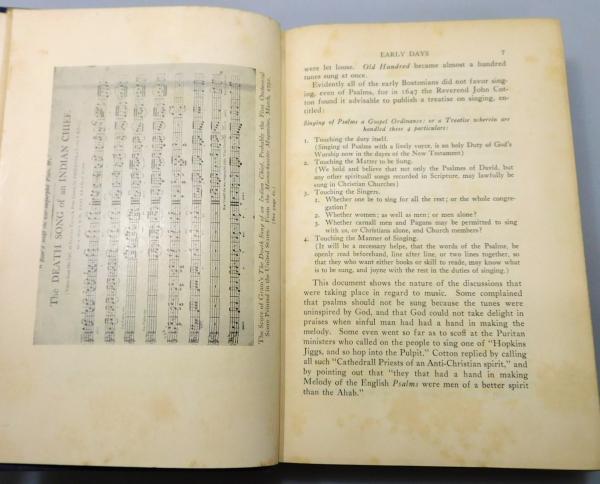 The DEATH SONG of an INDIAN CHIEF.
The Score of Gram's The Death Song of an Indian Chief, Probably the First Orchestral
Score Printed in the United States. From the Massachusetts Magazine, March, 1791.
EARLY DAYS 7
were let loose. Old Hundred became almost a hundred
tunes sung at once.
Evidently all of the early Bostonians did not favor sing-
ing, even of Psalms, for in 1647 the Reverend John Cot-
ton found it advisable to publish a treatise on singing, en-
titled:
Singing of Psalms a Gospel Ordinance: or a Treatise wherein are
handled these 4 particulars:
1. Touching the duty itself.
(Singing of Psalms with a lively voyce, is an holy Duty of God's
Worship now in the dayes of the New Testament)
2. Touching the Matter to be Sung.
(We hold and believe that not only the Psalmes of David, but
any other spirituall songs recorded in Scripture, may lawfully be
sung in Christian Churches)
3. Touching the Singers.
1. Whether one be to sing for all the rest; or the whole congre-
gation?
2. Whether women; as well as men; or men alone?
3. Whether carnall men and Pagans may be permitted to sing
with us, or Christians alone, and Church members?
4. Touching the Manner of Singing.
(It will be a necessary helpe, that the words of the Psalme, be
openly read beforehand, line after line, or two lines together, so
that they who want either books or skill to reade, may know what
is to be sung, and joyne with the rest in the duties of singing.)
This document shows the nature of the discussions that
were taking place in regard to music. Some complained
that psalms should not be sung because the tunes were
uninspired by God, and that God could not take delight in
praises when sinful man had had a hand in making the
melody. Some even went so far as to scoff at the Puritan
ministers who called on the people to sing one of "Hopkins
Jiggs, and so hop into the Pulpit." Cotton replied by calling
all such "Cathedrall Priests of an Anti-Christian spirit," and
by pointing out that "they that had a hand in making
Melody of the English Psalms were men of a better spirit
than the Ahab."